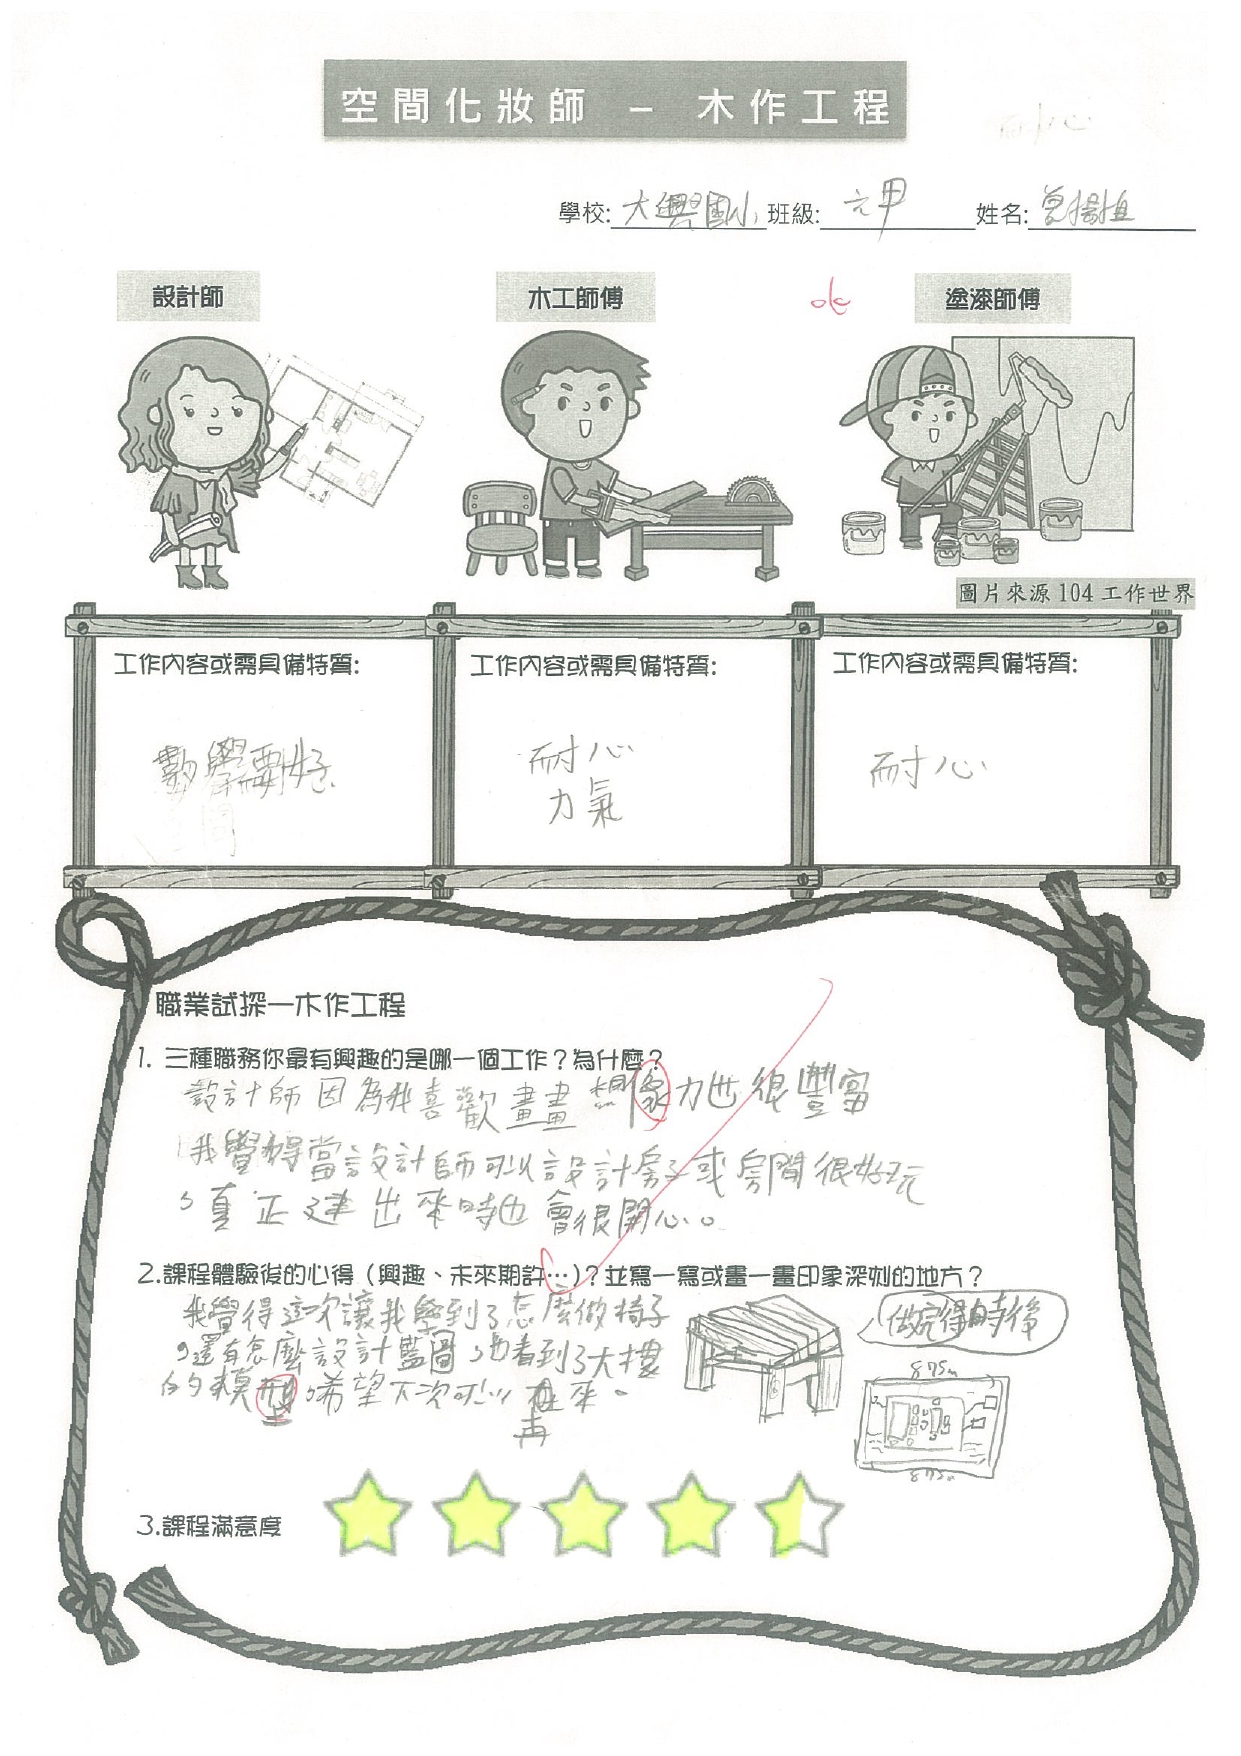 空間化妝師 - 木作工程
耐心
學校:大興國小 班級:六甲 姓名:
設計師
木工師傅
ok
塗漆師傅
圖片來源 104 工作世界
工作內容或需具備特質:
數學要好
工作內容或需具備特質:
耐心
力氣
工作內容或需具備特質:
耐心
職業試探—木作工程
1. 三種職務你最有興趣的是哪一個工作?為什麼?
設計師因為我喜歡畫畫想像力也很豐富
我覺得當設計師可以設計房子或房間很好玩
,真正建出來時也會很開心。
2.課程體驗後的心得(興趣、未來期許…)?並寫一寫或畫一畫印象深刻的地方?
我覺得這次讓我學到了怎麼做椅子
,還有怎麼設計藍圖,也看到了大樓
的模型,希望下次可以再來。
做完得時後
875m
875m
3.課程滿意度